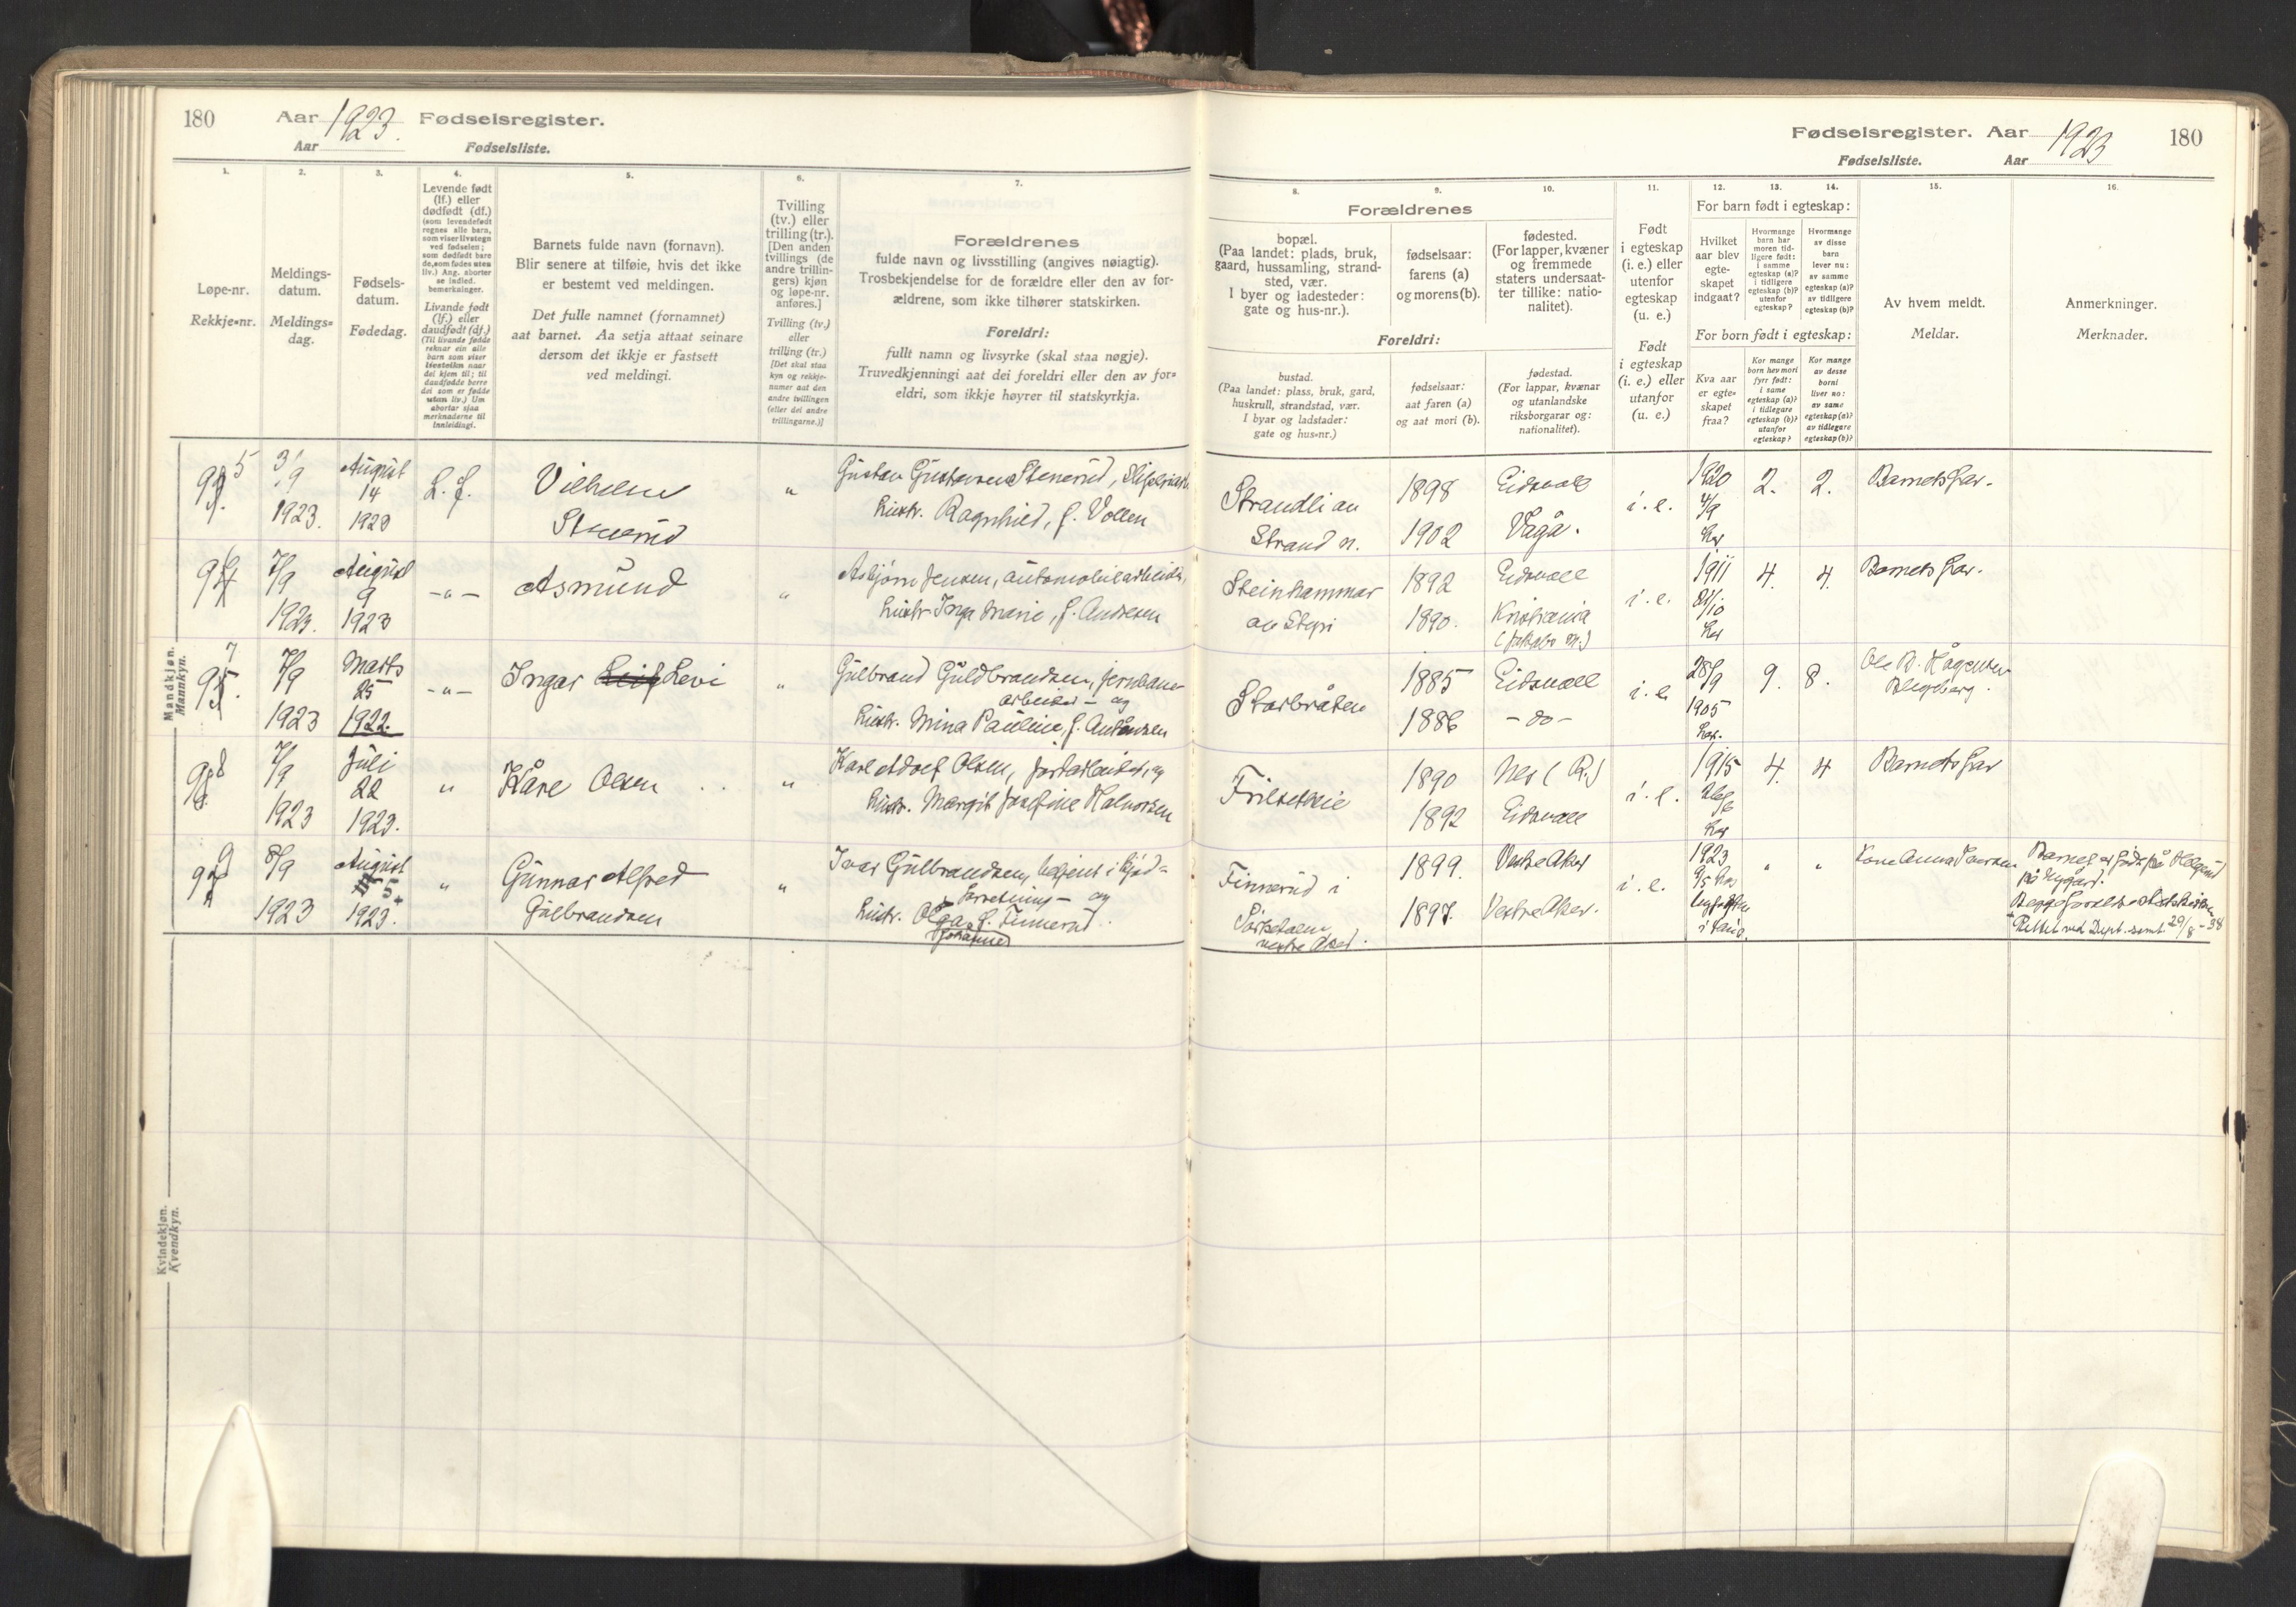 180 Aar 1923. Fødselsregister.
Aar Fødselsliste.
Fødselsregister. Aar 1923 180
Fødselsliste. Aar
1. 2. 3. 4. 5. 6. 7.
Løpe-nr.
Rekkje-nr.
Meldings-
datum.
Meldings-
dag.
Fødsels-
datum.
Fødedag.
Levende født
(lf.) eller
dødfødt (df.)
(som levendefødt
regnes alle barn,
som viser livstegn
ved fødselen;
som dødfødt bare
de, som fødes uten
liv.) Ang. aborter
se indled.
bemerkninger.
Livande født
(lf.) eller
daudfødt (df.)
(Til livande fødde
reknar ein alle
born som viser
livsteikn naar
dei kjem til; til
daudfødde berre
dei som er fødde
utan liv.) Um
abortar sjaa
merknaderne til
innleidingi.
Barnets fulde navn (fornavn).
Blir senere at tilføie, hvis det ikke
er bestemt ved meldingen.
Det fulle namnet (fornamnet)
aat barnet. Aa setja attaat seinare
dersom det ikkje er fastsett
ved meldingi.
Tvilling
(tv.) eller
trilling (tr.).
[Den anden
tvillings (de
andre trillin-
gers) kjøn
og løpe-nr.
anføres.]
Tvilling (tv.)
eller
trilling (tr.)
[Det skal staa
kyn og rekkje-
numer aat den
andre tvillingen
(eller dei andre
trillingarne.)]
Forældrenes
fulde navn og livsstilling (angives nøiagtig).
Trosbekjendelse for de forældre eller den av for-
ældrene, som ikke tilhører statskirken.
Foreldri:
fullt namn og livsyrke (skal staa nøgje).
Truvedkjenningi aat dei foreldri eller den av for-
eldri, som ikkje høyrer til statskyrkja.
8. 9. 10. 11. 12. 13. 14. 15. 16.
Forældrenes
bopæl.
(Paa landet: plads, bruk,
gaard, hussamling, strand-
sted, vær.
I byer og ladesteder:
gate og hus-nr.).
fødselsaar:
farens (a)
og morens (b).
fødested.
(For lapper, kvæner
og fremmede
staters undersaat-
ter tillike: natio-
nalitet).
Foreldri:
bustad.
(Paa landet: plass, bruk, gard,
huskrull, strandstad, vær.
I byar og ladstader:
gate og hus-nr.)
fødselsaar:
aat faren (a)
og aat mori (b).
fødestad.
(For lappar, kvænar
og utanlandske
riksborgarar og:
nationalitet).
Født
i egteskap
(i. e.) eller
utenfor
egteskap
(u. e.)
Født
i egteskap
(i. e.) eller
utanfor
(u. e.)
For barn født i egteskap:
Hvilket
aar blev
egte-
skapet
indgaat?
Hvormange
barn har
moren tid-
ligere født:
i samme
egteskap (a)?
i tidligere
egteskap (b)?
utenfor
egteskap?
Hvormange
av disse
barn
lever nu:
av samme
egteskap (a)?
av tidligere
egteskap (b)?
For born født i egteskap:
Kva aar
er egte-
skapet
fraa?
Kor mange
born hev mori
fyrr født:
i same
egteskap (a)?
i tidlegare
egteskap (b)?
utanfor
egteskap?
Kor mange
av desse
borni
liver no:
av same
egteskap (a)?
av tidlegare
egteskap (b)?
Av hvem meldt.
Meldar.
Anmerkninger.
Merknader.
Mandkjøn.
Mannkyn.
August 14 1923 L. f. Vilhelm
Stenerud
Gustav Gustavsen Stenerud,
hustr. Ragnhild, f. Vollen
Strandli av
Strand n.
1898 Eidsvoll
1902 Vågå.
i. e. 1920 4/9 2. 2. Barnets far.
7/9 1923. August 9 1923 -"- Asmund "
Asbjørn Jensen, automobilarbeider,
hustr Inga Marie, f. Andresen
Steinhammar
av Stejri
1892 Eidsvoll
1890. Kristiania
i. e. 1911 21/10 4. 4. Barnets far.
7/9 1923 Marts 25 1922. -"- Ingar Leif Levi "
Gulbrand Guldbrandsen, jernbane-
arbeider - og
hustr. Mina Pauline, f. Antonsen
Storbråten
1885 Eidsvoll
1886 - do -
i. e. 28/9 1905 9. 8. Ole B. Hågensen
7/9 1923 Juli 22 1923. " Kåre Olsen "
Karl Adolf Olsen, og
hustr. Margit Josefine Halvorsen
Frilseteie
1890 Nes (R.)
1892 Eidsvoll
i. e. 1915 4. 4 Barnets far
8/9 1923 August 5+ 1923. " Gunnar Alfred
Gulbrandsen "
Ivar Gulbrandsen, betjent i kjød-
forretning - og
hustr. Olga f. Finnerud.
Johanne
Finnerud i
Sørkedalen
vestre Aker.
1899. Vestre Aker
1897. Vestre Aker.
i. e. 1923 9/5 " " Kone Anna
Barnet er født på
på Nygård.
Begge forældre
+ Rettet ved Dept. samt. 29/8 - 38
Kvindekjøn.
Kvendkyn.